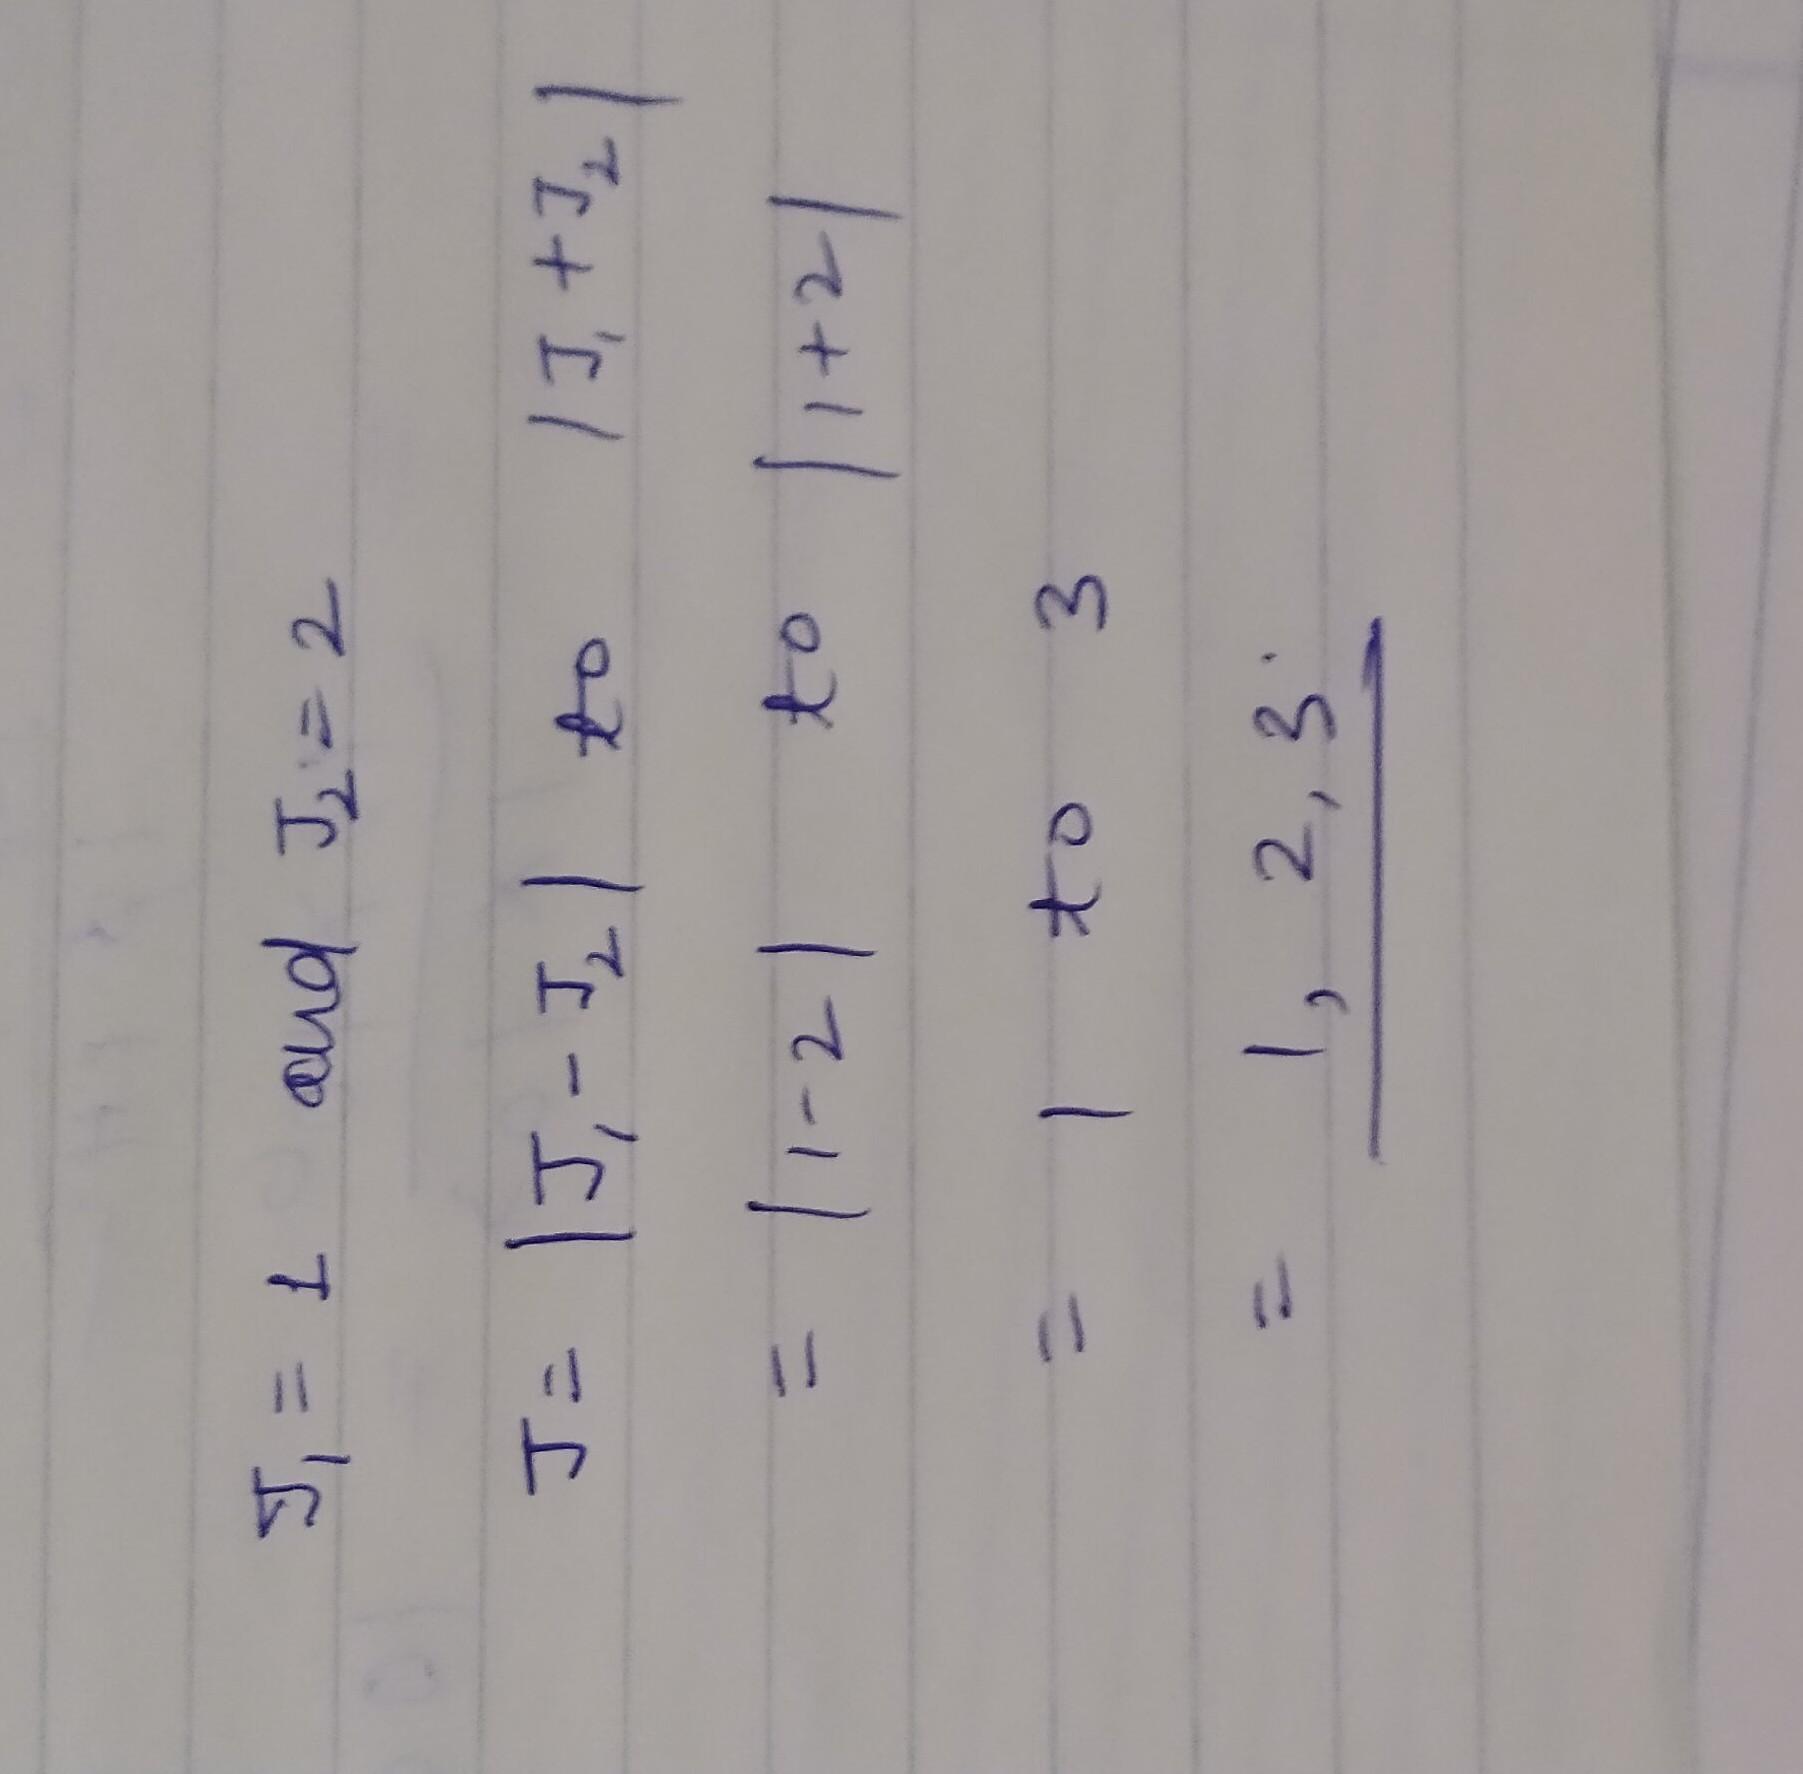 J₁ = 1 and J₂ = 2
J = |J₁ - J₂| to |J₁ + J₂|
= |1-2| to |1+2|
= 1 to 3
= 1, 2, 3.